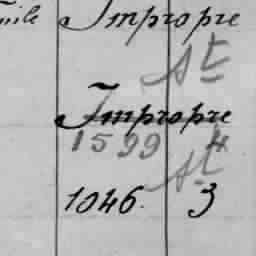 Impropre
St
Impropre
1599 4
St
1046. 3